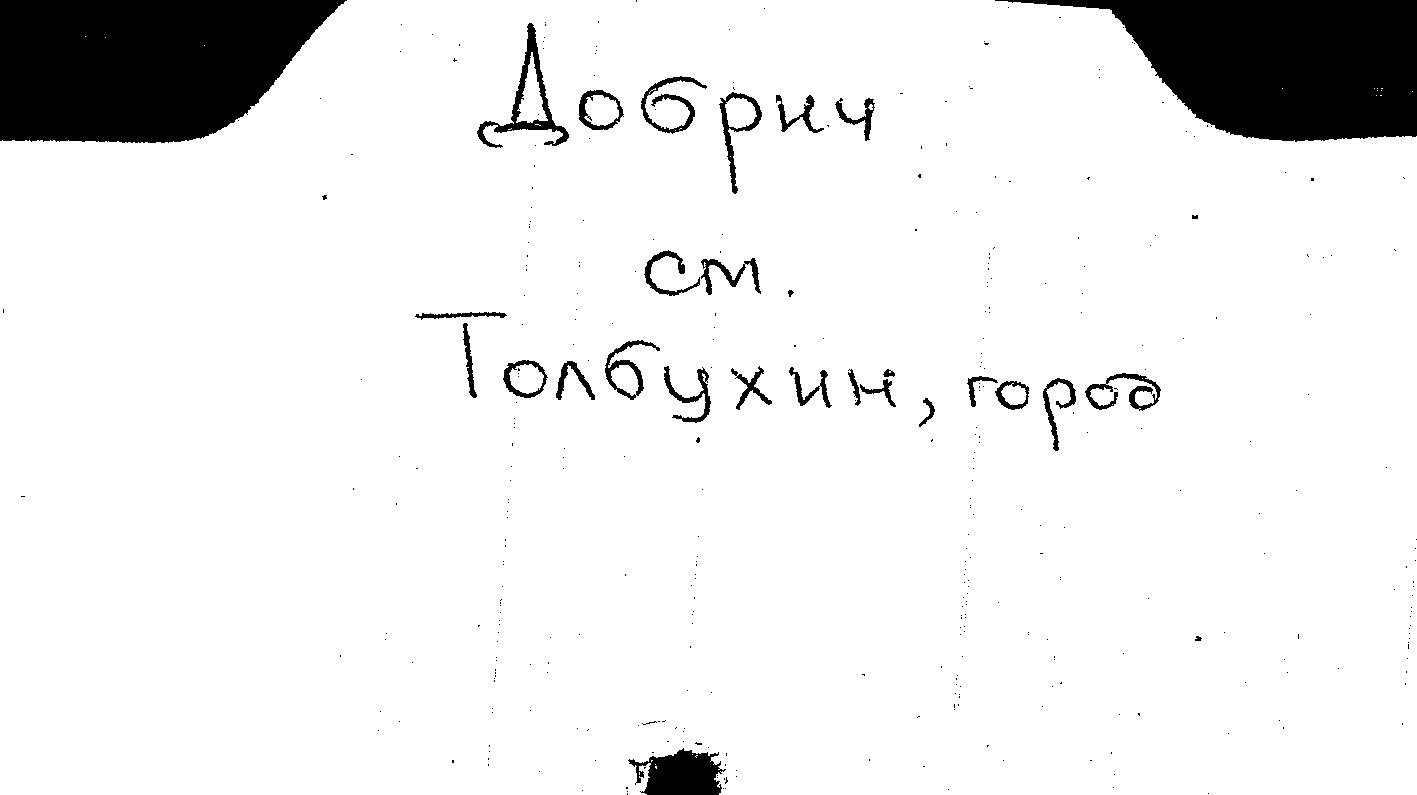 Добрич
см.
Толбухин, город